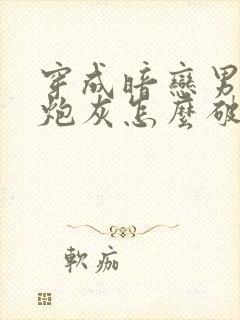 穿成暗戀男
炮灰怎麼破
軟痂